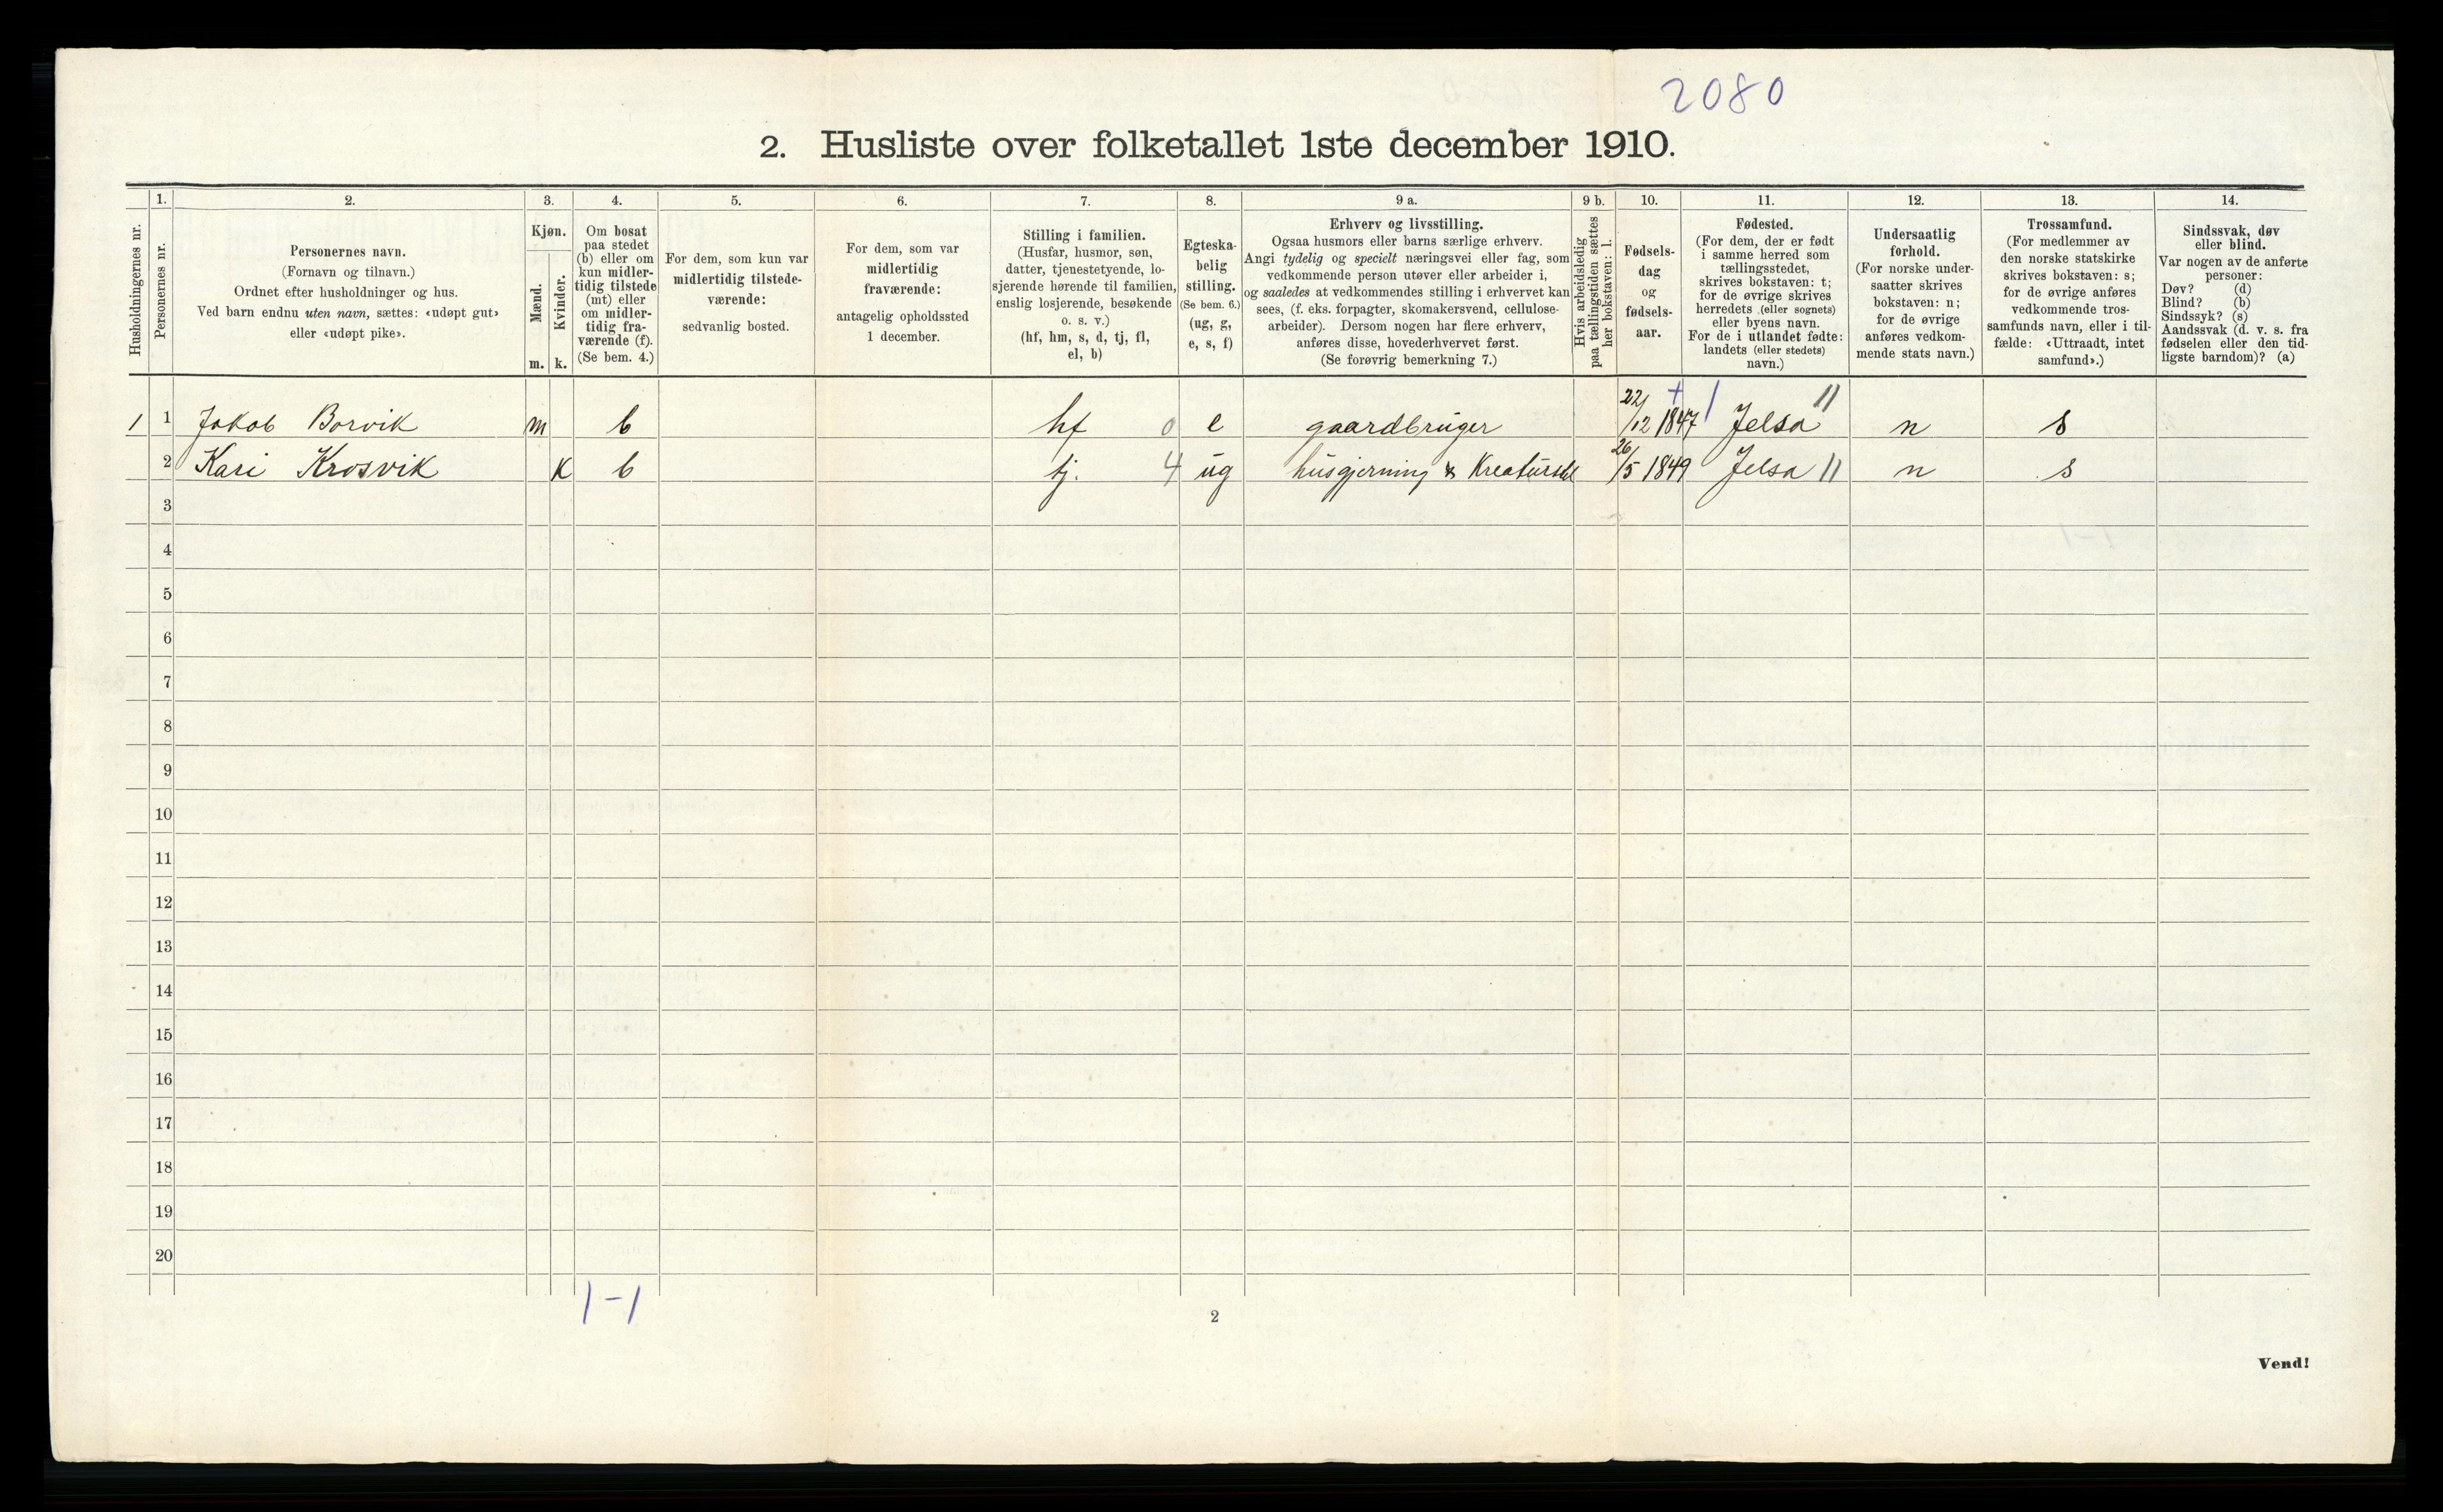 2080
2. Husliste over folketallet 1ste december 1910.
Husholdningernes nr.
1.
Personernes nr.
2.
Personernes navn.
(Fornavn og tilnavn.)
Ordnet efter husholdninger og hus.
Ved barn endnu uten navn, sættes: «udøpt gut»
eller «udøpt pike».
3.
Kjøn.
Mænd.
m.
Kvinder.
k.
4.
Om bosat
paa stedet
(b) eller om
kun midler-
tidig tilstede
(mt) eller
om midler-
tidig fra-
værende (f).
(Se bem. 4.)
5.
For dem, som kun var
midlertidig tilstede-
værende:
sedvanlig bosted.
6.
For dem, som var
midlertidig
fraværende:
antagelig opholdssted
1 december.
7.
Stilling i familien.
(Husfar, husmor, søn,
datter, tjenestetyende, lo-
sjerende hørende til familien,
enslig losjerende, besøkende
o. s. v.)
(hf, hm, s, d, tj, fl,
el, b)
8.
Egteska-
belig
stilling.
(Se bem. 6.)
(ug, g,
e, s, f)
9 a.
Erhverv og livsstilling.
Ogsaa husmors eller barns særlige erhverv.
Angi tydelig og specielt næringsvei eller fag, som
vedkommende person utøver eller arbeider i,
og saaledes at vedkommendes stilling i erhvervet kan
sees, (f. eks. forpagter, skomakersvend, cellulose-
arbeider). Dersom nogen har flere erhverv,
anføres disse, hovederhvervet først.
(Se forøvrig bemerkning 7.)
9 b.
Hvis arbeidsledig
paa tællingstiden sættes
her bokstaven: l.
10.
Fødsels-
dag
og
fødsels-
aar.
11.
Fødested.
(For dem, der er født
i samme herred som
tællingsstedet,
skrives bokstaven: t;
for de øvrige skrives
herredets (eller sognets)
eller byens navn.
For de i utlandet fødte:
landets (eller stedets)
navn.)
12.
Undersaatlig
forhold.
(For norske under-
saatter skrives
bokstaven: n;
for de øvrige
anføres vedkom-
mende stats navn.)
13.
Trossamfund.
(For medlemmer av
den norske statskirke
skrives bokstaven: s;
for de øvrige anføres
vedkommende tros-
samfunds navn, eller i til-
fælde: «Uttraadt, intet
samfund».)
14.
Sindssvak, døv
eller blind.
Var nogen av de anførte
personer:
Døv? (d)
Blind? (b)
Sindssyk? (s)
Aandssvak (d. v. s. fra
fødselen eller den tid-
ligste barndom)? (a)
1 1 Jakob Borvik m b hf 0 e gaardbruger 22/12 1847 + / Jelsa 11 n s
2 Kari Krosvik K b tj. 4 ug husgjerning & Kreaturstel 26/5 1849 Jelsa 11 n s
3
4
5
6
7
8
9
10
11
12
13
14
15
16
17
18
19
20
1-1
2
Vend!